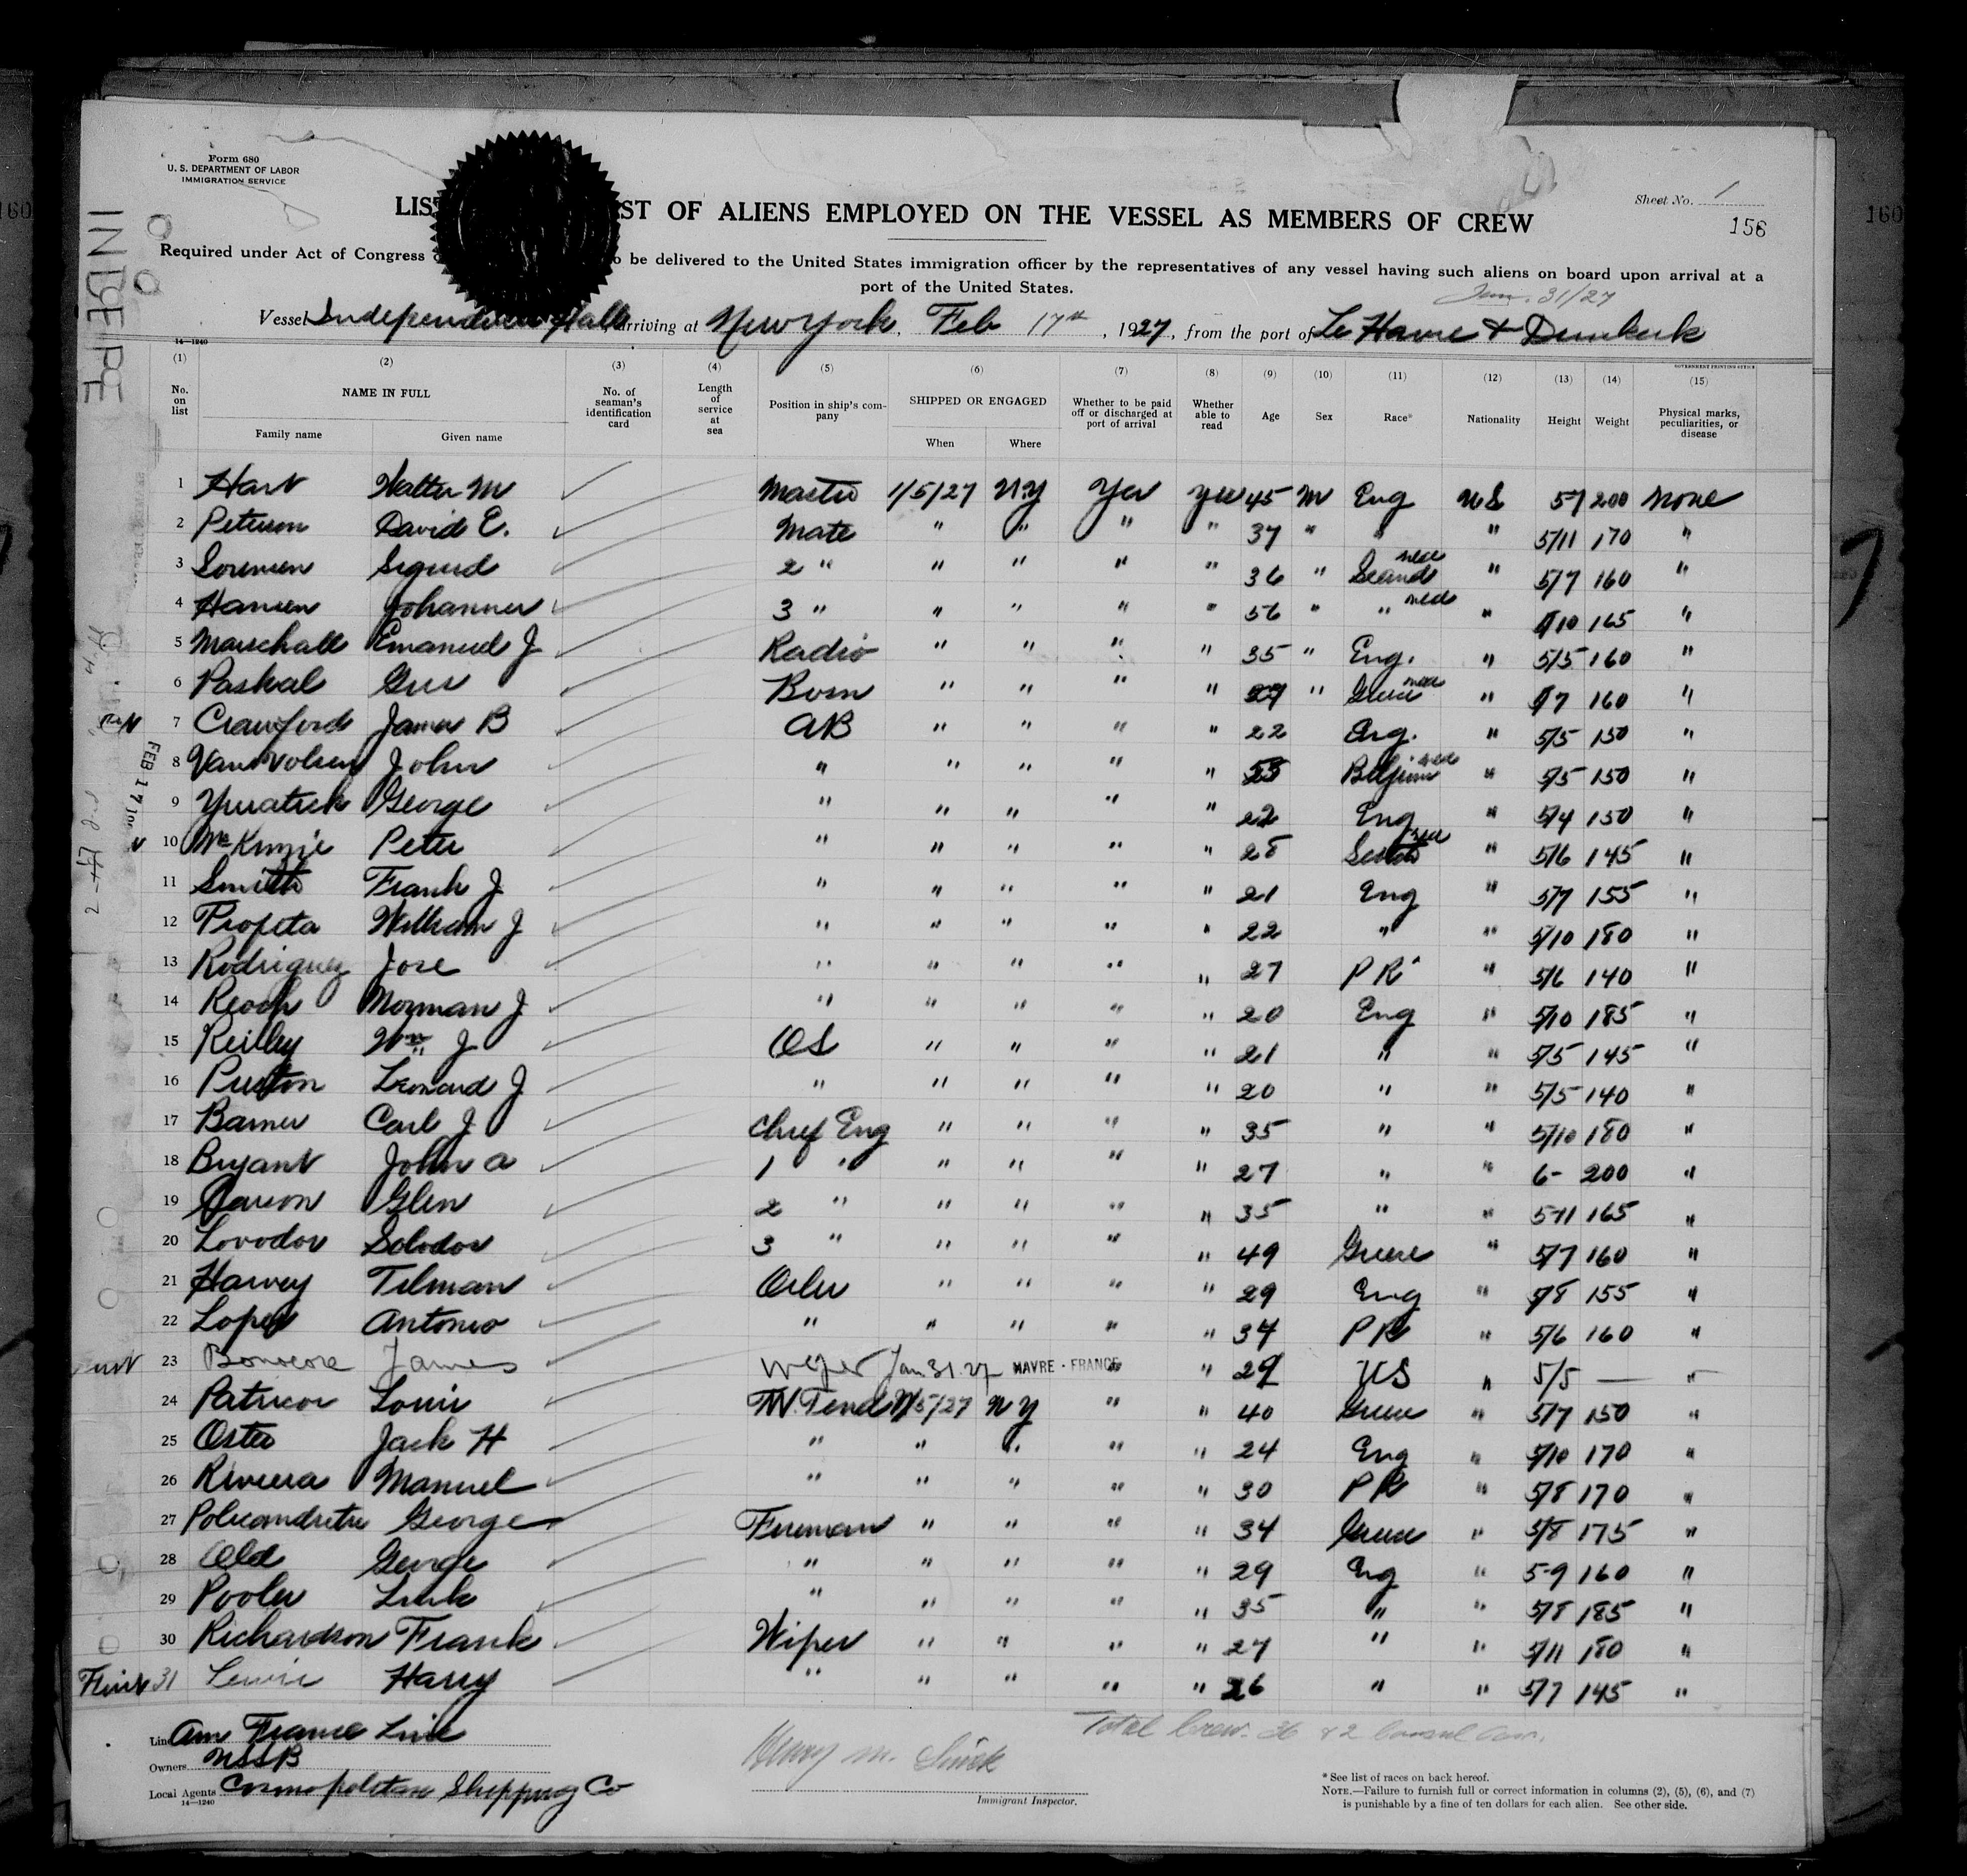 Form 680
U. S. DEPARTMENT OF LABOR
IMMIGRATION SERVICE
Sheet No. 1
156
160
160
LIS ST OF ALIENS EMPLOYED ON THE VESSEL AS MEMBERS OF CREW
Required under Act of Congress o be delivered to the United States immigration officer by the representatives of any vessel having such aliens on board upon arrival at a
port of the United States.
Jan. 31/27
Vessel Independence Hall, arriving at New York, Feb 17th, 1927, from the port of Le Havre & Dunkirk
14—1240
GOVERNMENT PRINTING OFFICE
(1) (2) (3) (4) (5) (6) (7) (8) (9) (10) (11) (12) (13) (14) (15)
No. on list NAME IN FULL Family name Given name No. of seaman's identification card Length of service at sea Position in ship's company SHIPPED OR ENGAGED When Where Whether to be paid off or discharged at port of arrival Whether able to read Age Sex Race* Nationality Height Weight Physical marks, peculiarities, or disease
1 Hart Walter M Master 1/5/27 N.Y Yes yes 45 M Eng US 57 200 none
2 Peterson David E. Mate " " " " 37 " " " 5/11 170 "
3 Sorensen Sigurd 2 " " " " " 36 " Scand " 5/7 160 "
4 Hansen Johannes 3 " " " " " 56 " " " 5/10 165 "
5 Marschall Emanuel J Radio " " " " 35 " Eng. " 5/5 160 "
6 Paskal Gus Bosn " " " " " Greece " 5/7 160 "
7 Crawford James B AB " " " " 22 Eng. " 5/5 150 "
8 John " " " " " Belgium " 5/5 150 "
9 George " " " " " 22 Eng " 5/4 150 "
10 McKenzie Peter " " " " " 28 " 5/6 145 "
11 Smith Frank J " " " " " 21 Eng " 5/7 155 "
12 Profeta William J " " " " " 22 " " 5/10 180 "
13 Rodriguez Jose " " " " " 27 PR " 5/6 140 "
14 Norman J " " " " " 20 Eng " 5/10 185 "
15 Reilley Wm J OS " " " " 21 " " 5/5 145 "
16 Preston Leonard J " " " " " 20 " " 5/5 140 "
17 Barnes Carl J Chief Eng " " " " 35 " " 5/10 180 "
18 Bryant John A 1 " " " " " 27 " " 6- 200 "
19 Carson Glen 2 " " " " " 35 " " 5-11 165 "
20 Lovodov Solodov 3 " " " " " 49 Greece " 5/7 160 "
21 Harvey Tilman Oiler " " " " 29 Eng " 5/8 155 "
22 Lopez Antonio " " " " " 34 PR " 5/6 160 "
23 Bonocore James Wiper Jan 31. 27 HAVRE - FRANCE " " 29 US " 5/5 — "
24 Patricor Louis W. Tend 1/5/27 N Y " " 40 Greece " 5/7 150 "
25 Oster Jack H " " " " " 24 Eng " 5/10 170 "
26 Riviera Manuel " " " " " 30 PR " 5/8 170 "
27 George Fireman " " " " 34 Greece " 5/8 175 "
28 Old George " " " " " 29 Eng " 5-9 160 "
29 Pooler " " " " " 35 " " 5/8 185 "
30 Richardson Frank Wiper " " " " 27 " " 5/11 180 "
31 Lewis Harry " " " " " 26 " " 5/7 145 "
FEB 17
Line Am France Line
Owners USSB
Local Agents Cosmopolitan Shipping Co
14—1240
Total Crew 36 & 2
Henry M.
Immigrant Inspector.
* See list of races on back hereof.
NOTE.—Failure to furnish full or correct information in columns (2), (5), (6), and (7)
is punishable by a fine of ten dollars for each alien. See other side.